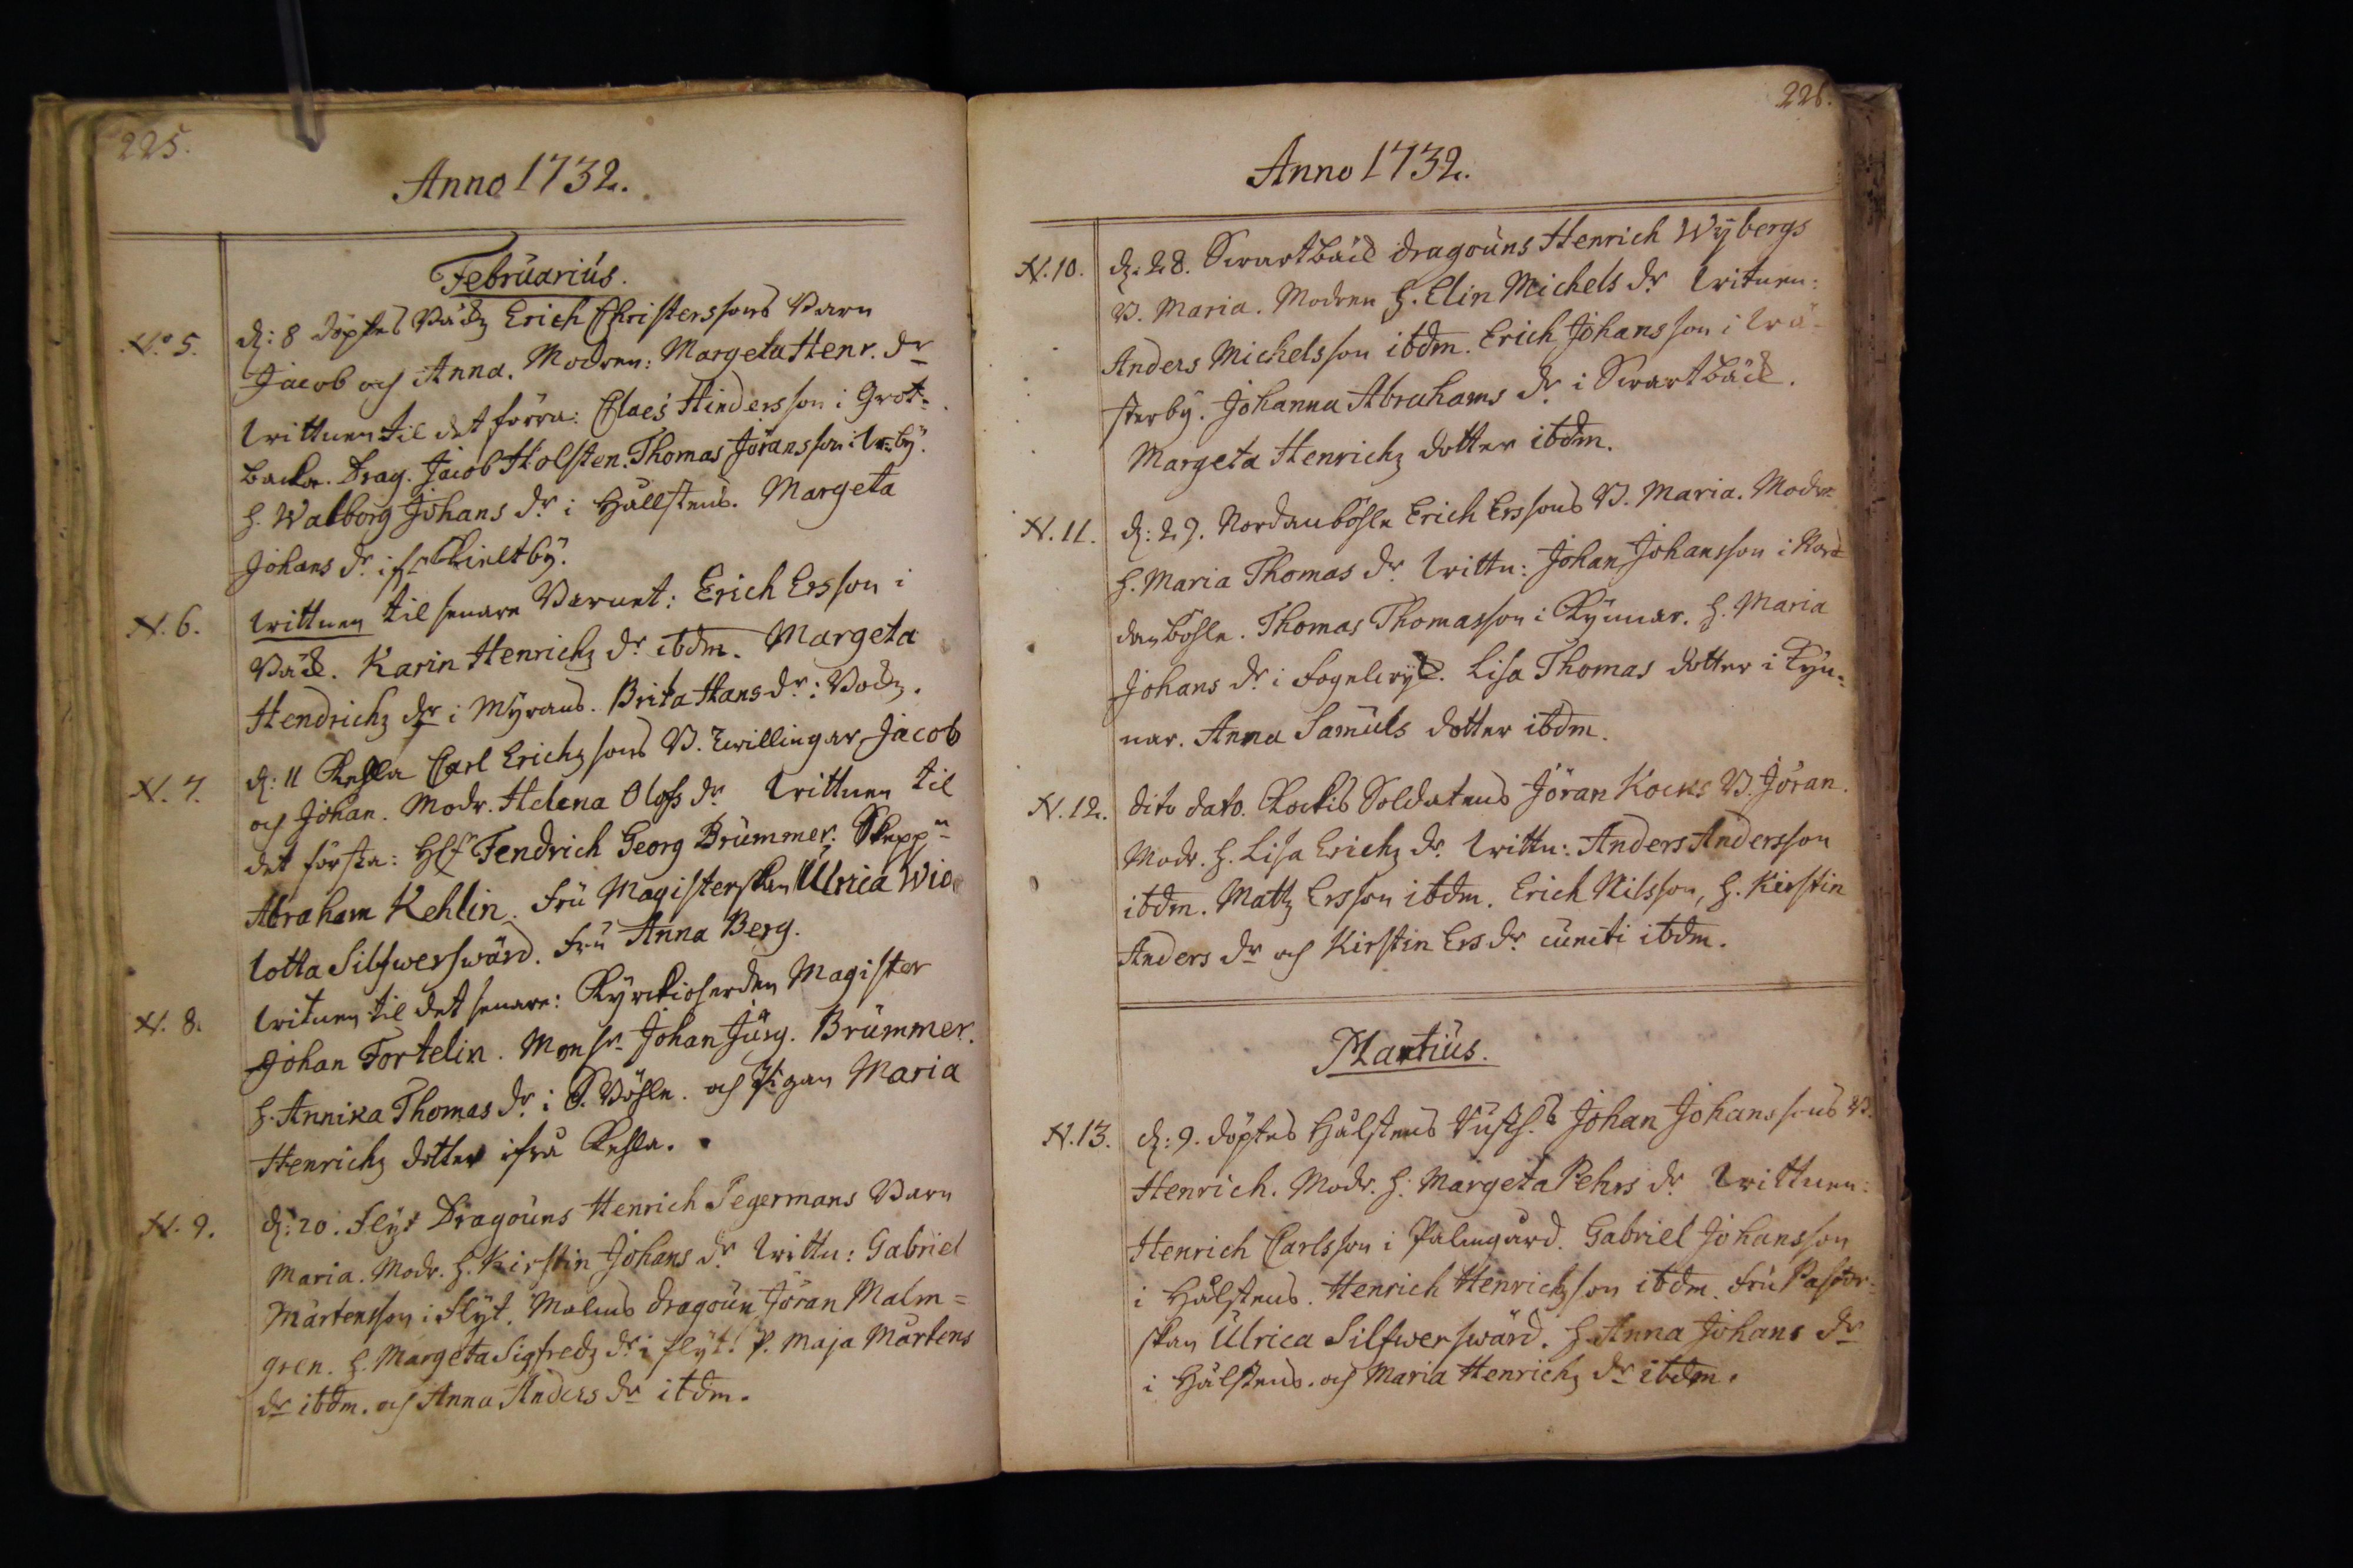 225.
Anno 1732.
Februarius.
N:o 5. d: 8 döptes Bäck Erich Christerssons Barn
Jacob och Anna. Modren: Margeta Henr. dr
Wittnen til det förra: Claes Hindersson i Grot-
backa. Drag. Jacob Holsten. Thomas Jöransson i W:by.
h. Walborg Johans dr i Hällstens. Margeta
Johans dr i
N. 6. Wittnen til senare Barnet: Erich Ersson i
Bäck. Karin Henrichz dr ibdm. Margeta
Hendrichz dr i Myrans. Brita Hans dr i
N. 7. d: 11 Carl Erichzsons B. Twillingar Jacob
och Johan. Modr. Helena Olofs dr Wittnen til
det första: Fendrich Georg Brümmer.
Abraham Kehlin. Fru Magisterskan Ulrica Wio
lotta Silfwerswärd. Fru Anna Berg.
N. 8. Witnen til det senare: Kyrckioherden Magister
Johan Fortelin. Monsr Johan Jürg. Brümmer.
h. Annika Thomas dr i S. Böhle. och Pigan Maria
Henrichz dotter ifrå
N. 9. d: 20. Flyt Dragouns Henrich Segermans Barn
Maria. Modr. h. Kirstin Johans dr Wittn: Gabriel
Mårtensson i Flyt. Malms dragoun Jöran Malm=
gren. h. Margeta Sigfredz dr i flyt. P. Maja Mårtens
dr ibdm. och Anna Anders dr ibdm.
226.
Anno 1732.
N. 10. d: 28. Swartbäck dragouns Henrich Wybergs
B. Maria. Modren h. Elin Michels dr Witnen:
Anders Michelsson ibdm. Erich Johansson i Wä-
sterby. Johanna Abrahams dr i Swartbäck.
Margeta Henrichz dotter ibdm.
N. 11. d: 29. Nordanböhle Erich Erssons B. Maria. Modr.
h. Maria Thomas dr Wittn: Johan Johansson i Nor-
danböhle. Thomas Thomasson i Kynnar. h. Maria
Johans dr i Lisa Thomas dotter i Kyn-
nar. Anna Samuls dotter ibdm.
N. 12. dito dato. Soldatens Jöran Kocks B. Jöran.
Modr. h. Lisa Erichz dr. Wittn: Anders Andersson
ibdm. Mattz Ersson ibdm. Erich Nilsson, h. Kirstin
Anders dr och Kirstin Ers dr cuncti ibdm.
Martius.
N. 13. d: 9. döptes Hälstens Johan Johanssons B.
Henrich. Modr. h. Margeta Pehrs dr Wittnen:
Henrich Carlsson i Palmgård. Gabriel Johansson
i Hälstens. Henrich Henrichzson ibdm. Fru Pastor-
skan Ulrica Silfwerswärd. h. Anna Johans dr
i Hälstens. och Maria Henrichz dr ibdm.